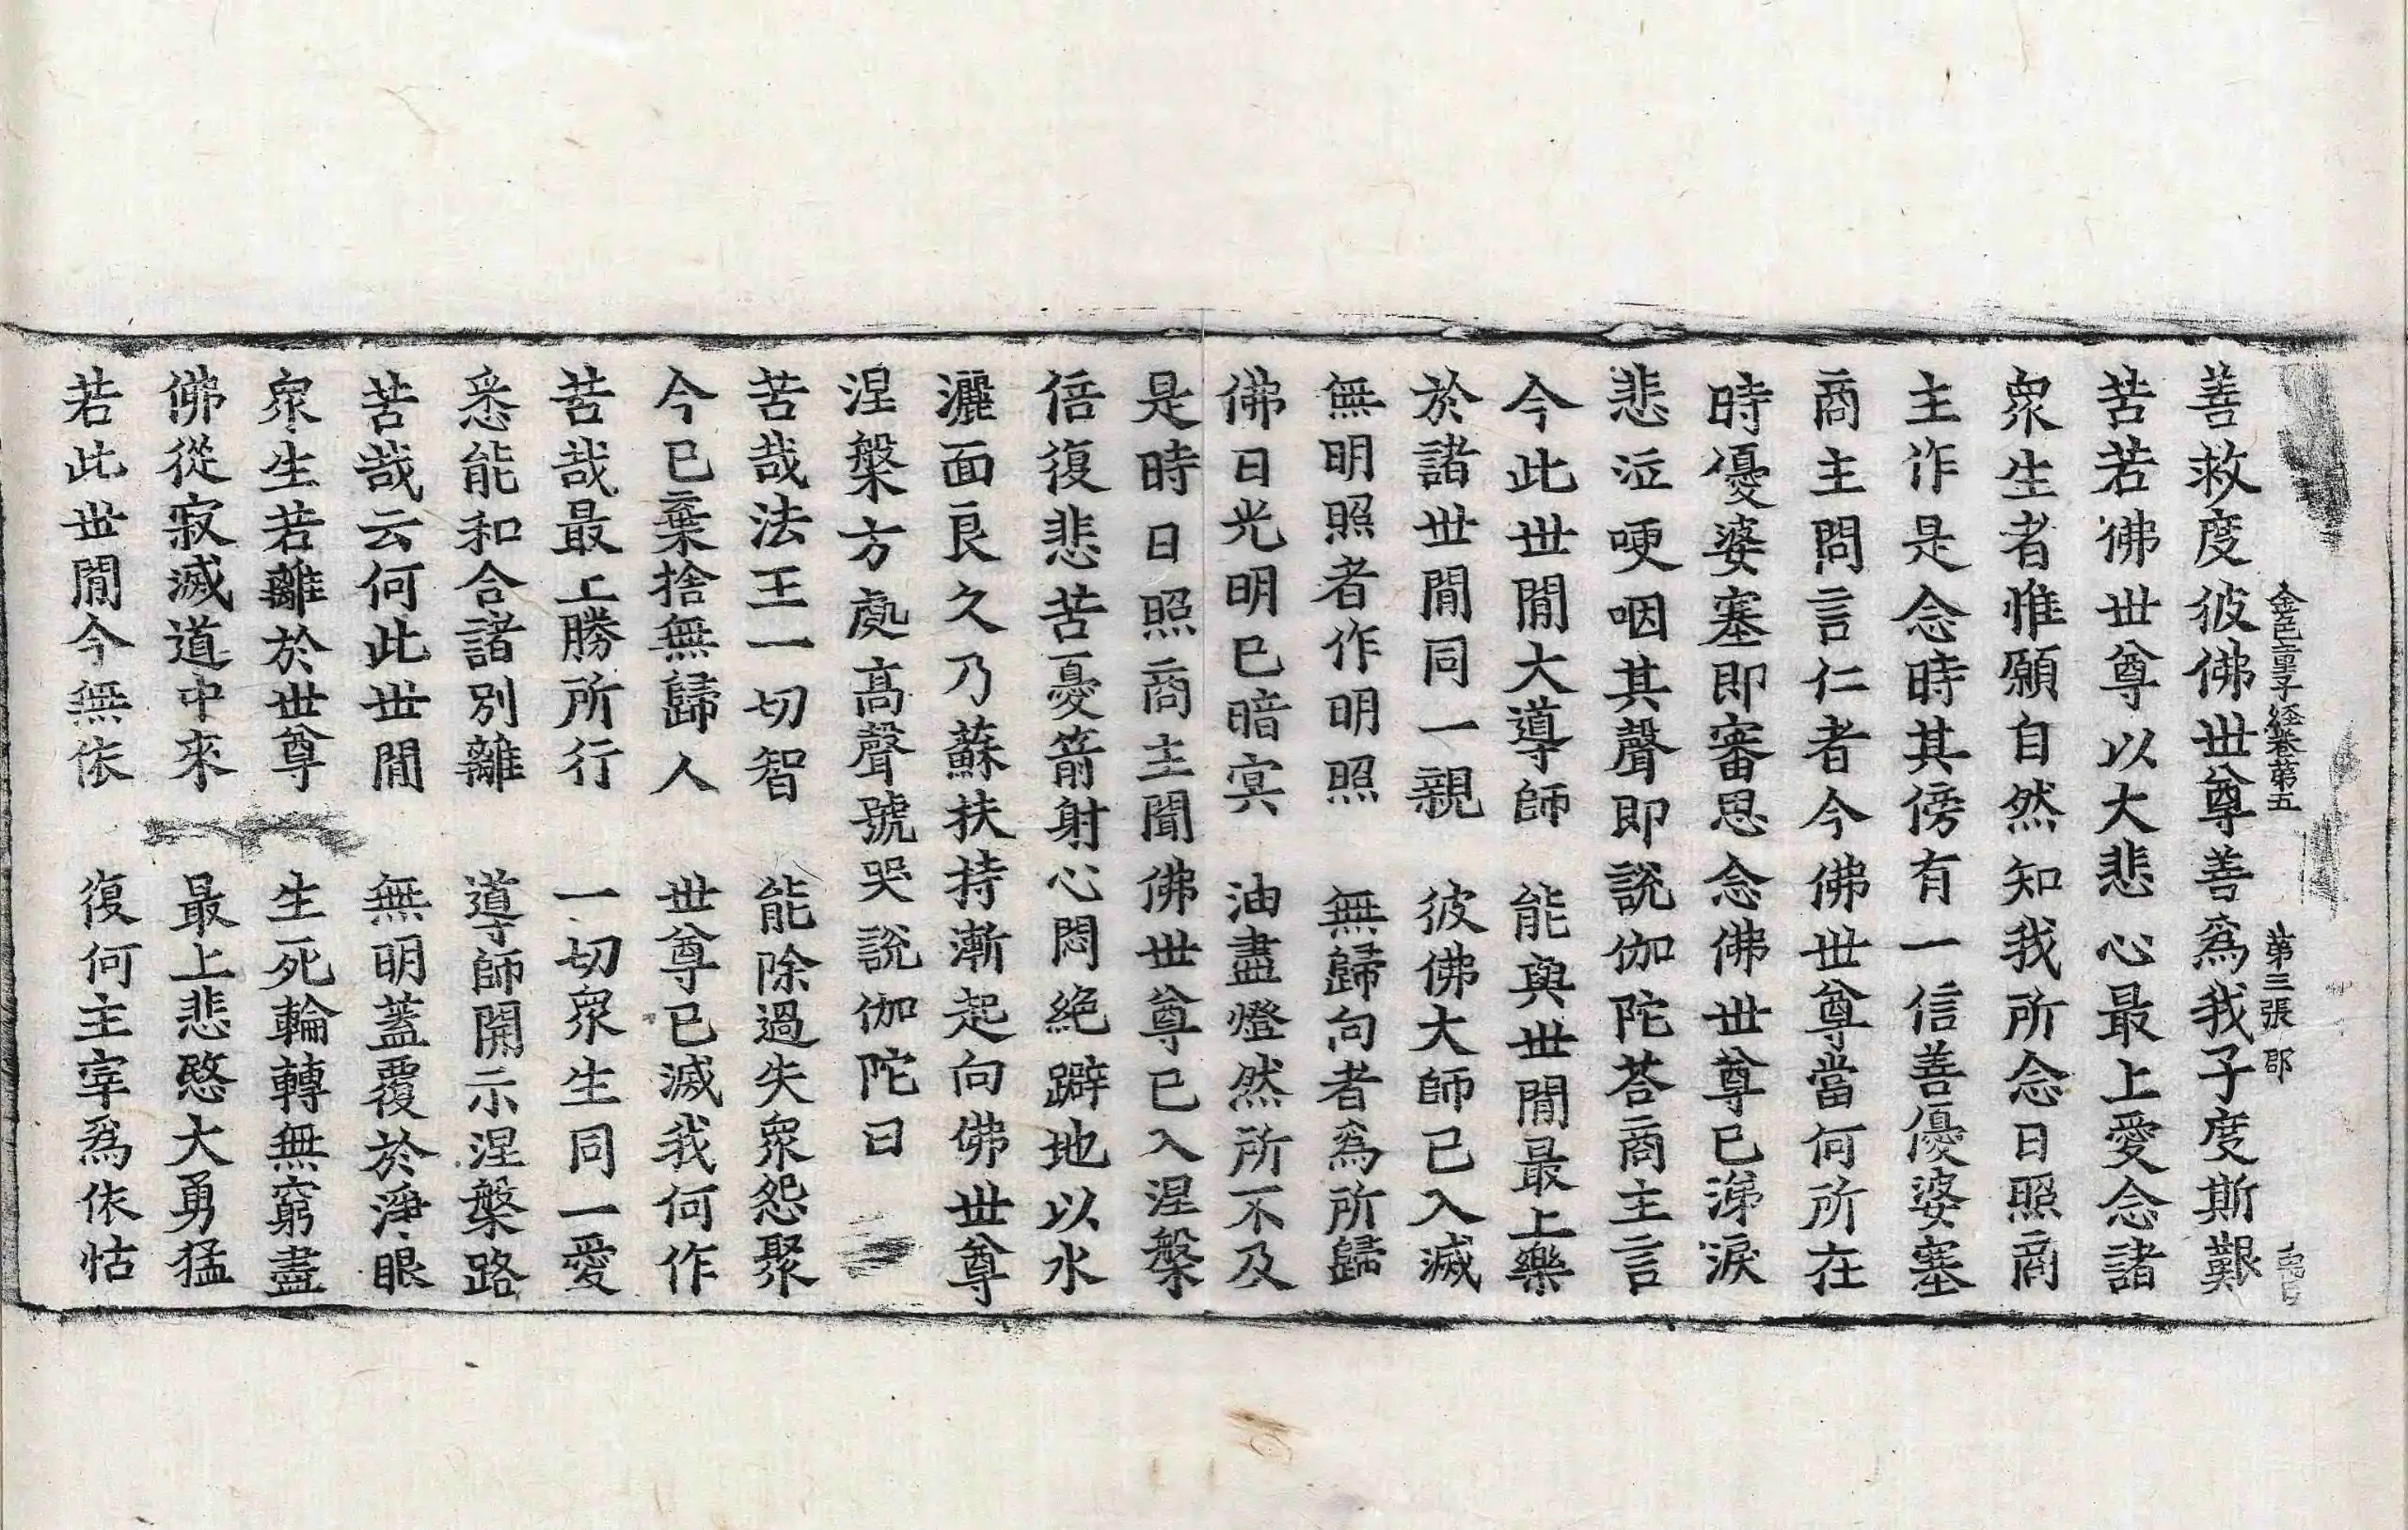 金色童子經卷第五 第三張 郡
善救度彼佛世尊善爲我子度斯艱
苦若佛世尊以大悲心最上愛念諸
衆生者惟願自然知我所念日照商
主作是念時其傍有一信善優婆塞
商主問言仁者今佛世尊當何所在
時優婆塞即審思念佛世尊已涕淚
悲泣哽咽其聲即說伽陀荅商主言
今此世閒大導師 能與世閒最上樂
於諸世閒同一親 彼佛大師已入滅
無明照者作明照 無歸向者爲所歸
佛日光明已暗寘 油盡燈然所不及
是時日照商主聞佛世尊已入涅槃
倍復悲苦憂箭射心悶絕躃地以水
灑面良久乃蘇扶持漸起向佛世尊
涅槃方處高聲號哭說伽陀曰
苦哉法王一切智 能除過失衆怨聚
今已棄捨無歸人 世尊已滅我何作
苦哉最上勝所行 一切衆生同一愛
悉能和合諸別離 導師開示涅槃路
苦哉云何此世閒 無明蓋覆於淨眼
衆生若離於世尊 生死輪轉無窮盡
佛從寂滅道中來 最上悲愍大勇猛
若此世閒今無依 復何主宰爲依怙